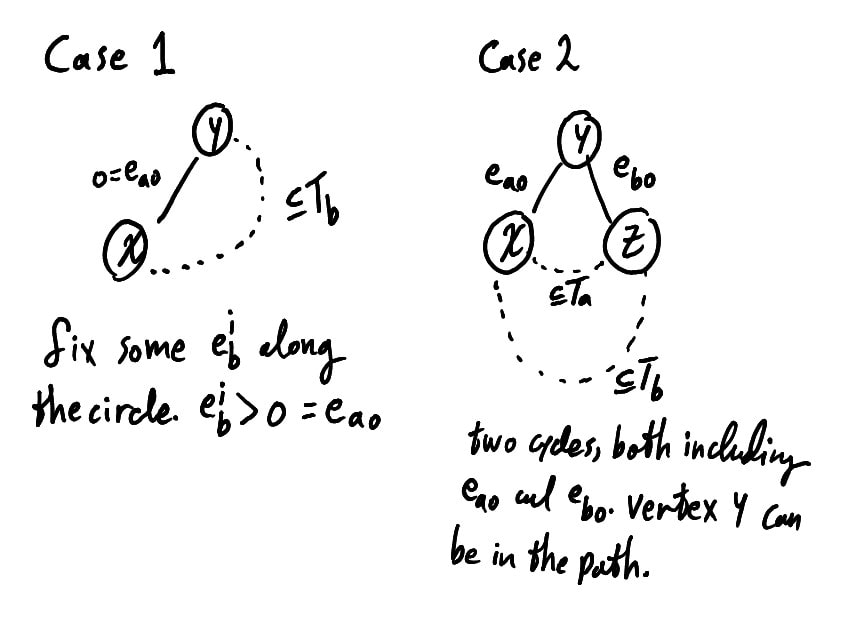 Case 1
Y
0=e_{a0}
⊆T_b
X
fix some e_b^i along
the circle. e_b^i > 0 = e_{a0}
Case 2
Y
e_{a0}
e_{b0}
X
Z
⊆T_a
⊆T_b
two cycles, both including
e_{a0} and e_{b0}. Vertex Y can
be in the path.